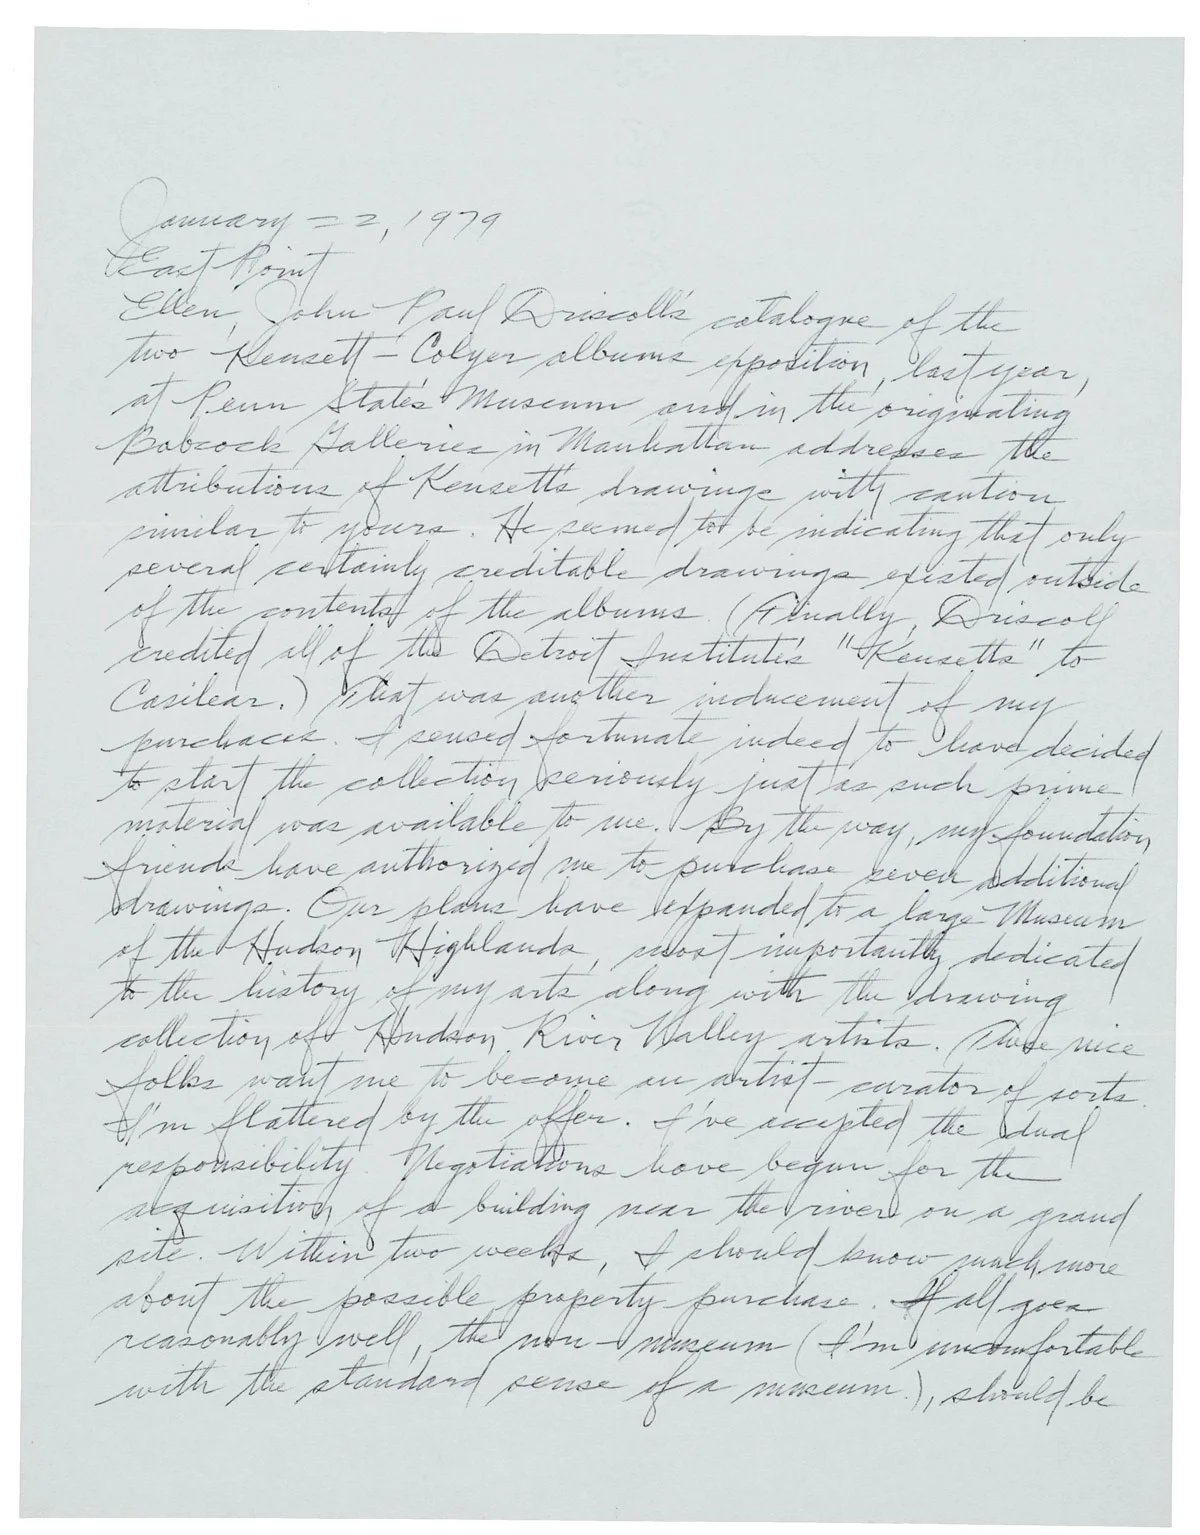 January 22, 1979
East Point
Ellen, John Paul Driscoll's catalogue of the
two Kensett-Colyer albums exposition, last year,
at Penn State's Museum and in the originating
Babcock Galleries in Manhattan addresses the
attributions of Kensett's drawings with caution
similar to yours. He seemed to be indicating that only
several certainly creditable drawings existed outside
of the contents of the albums. (Finally, Driscoll
credited all of the Detroit Institute's "Kensetts" to
Casilear.) That was another inducement of my
purchaces. I sensed fortunate indeed to have decided
to start the collection seriously just as such prime
material was available to me. By the way, my foundation
friends have authorized me to purchase seven additional
drawings. Our plans have expanded to a large Museum
of the Hudson Highlands, most importantly dedicated
to the history of my arts along with the drawing
collection of Hudson River Valley artists. Those nice
folks want me to become an artist-curator of sorts.
I'm flattered by the offer. I've accepted the dual
responsibility. Negotiations have begun for the
acquisition of a building near the river on a grand
site. Within two weeks, I should know much more
about the possible property purchase. If all goes
reasonably well, the non-museum (I'm uncomfortable
with the standard sense of a museum.), should be